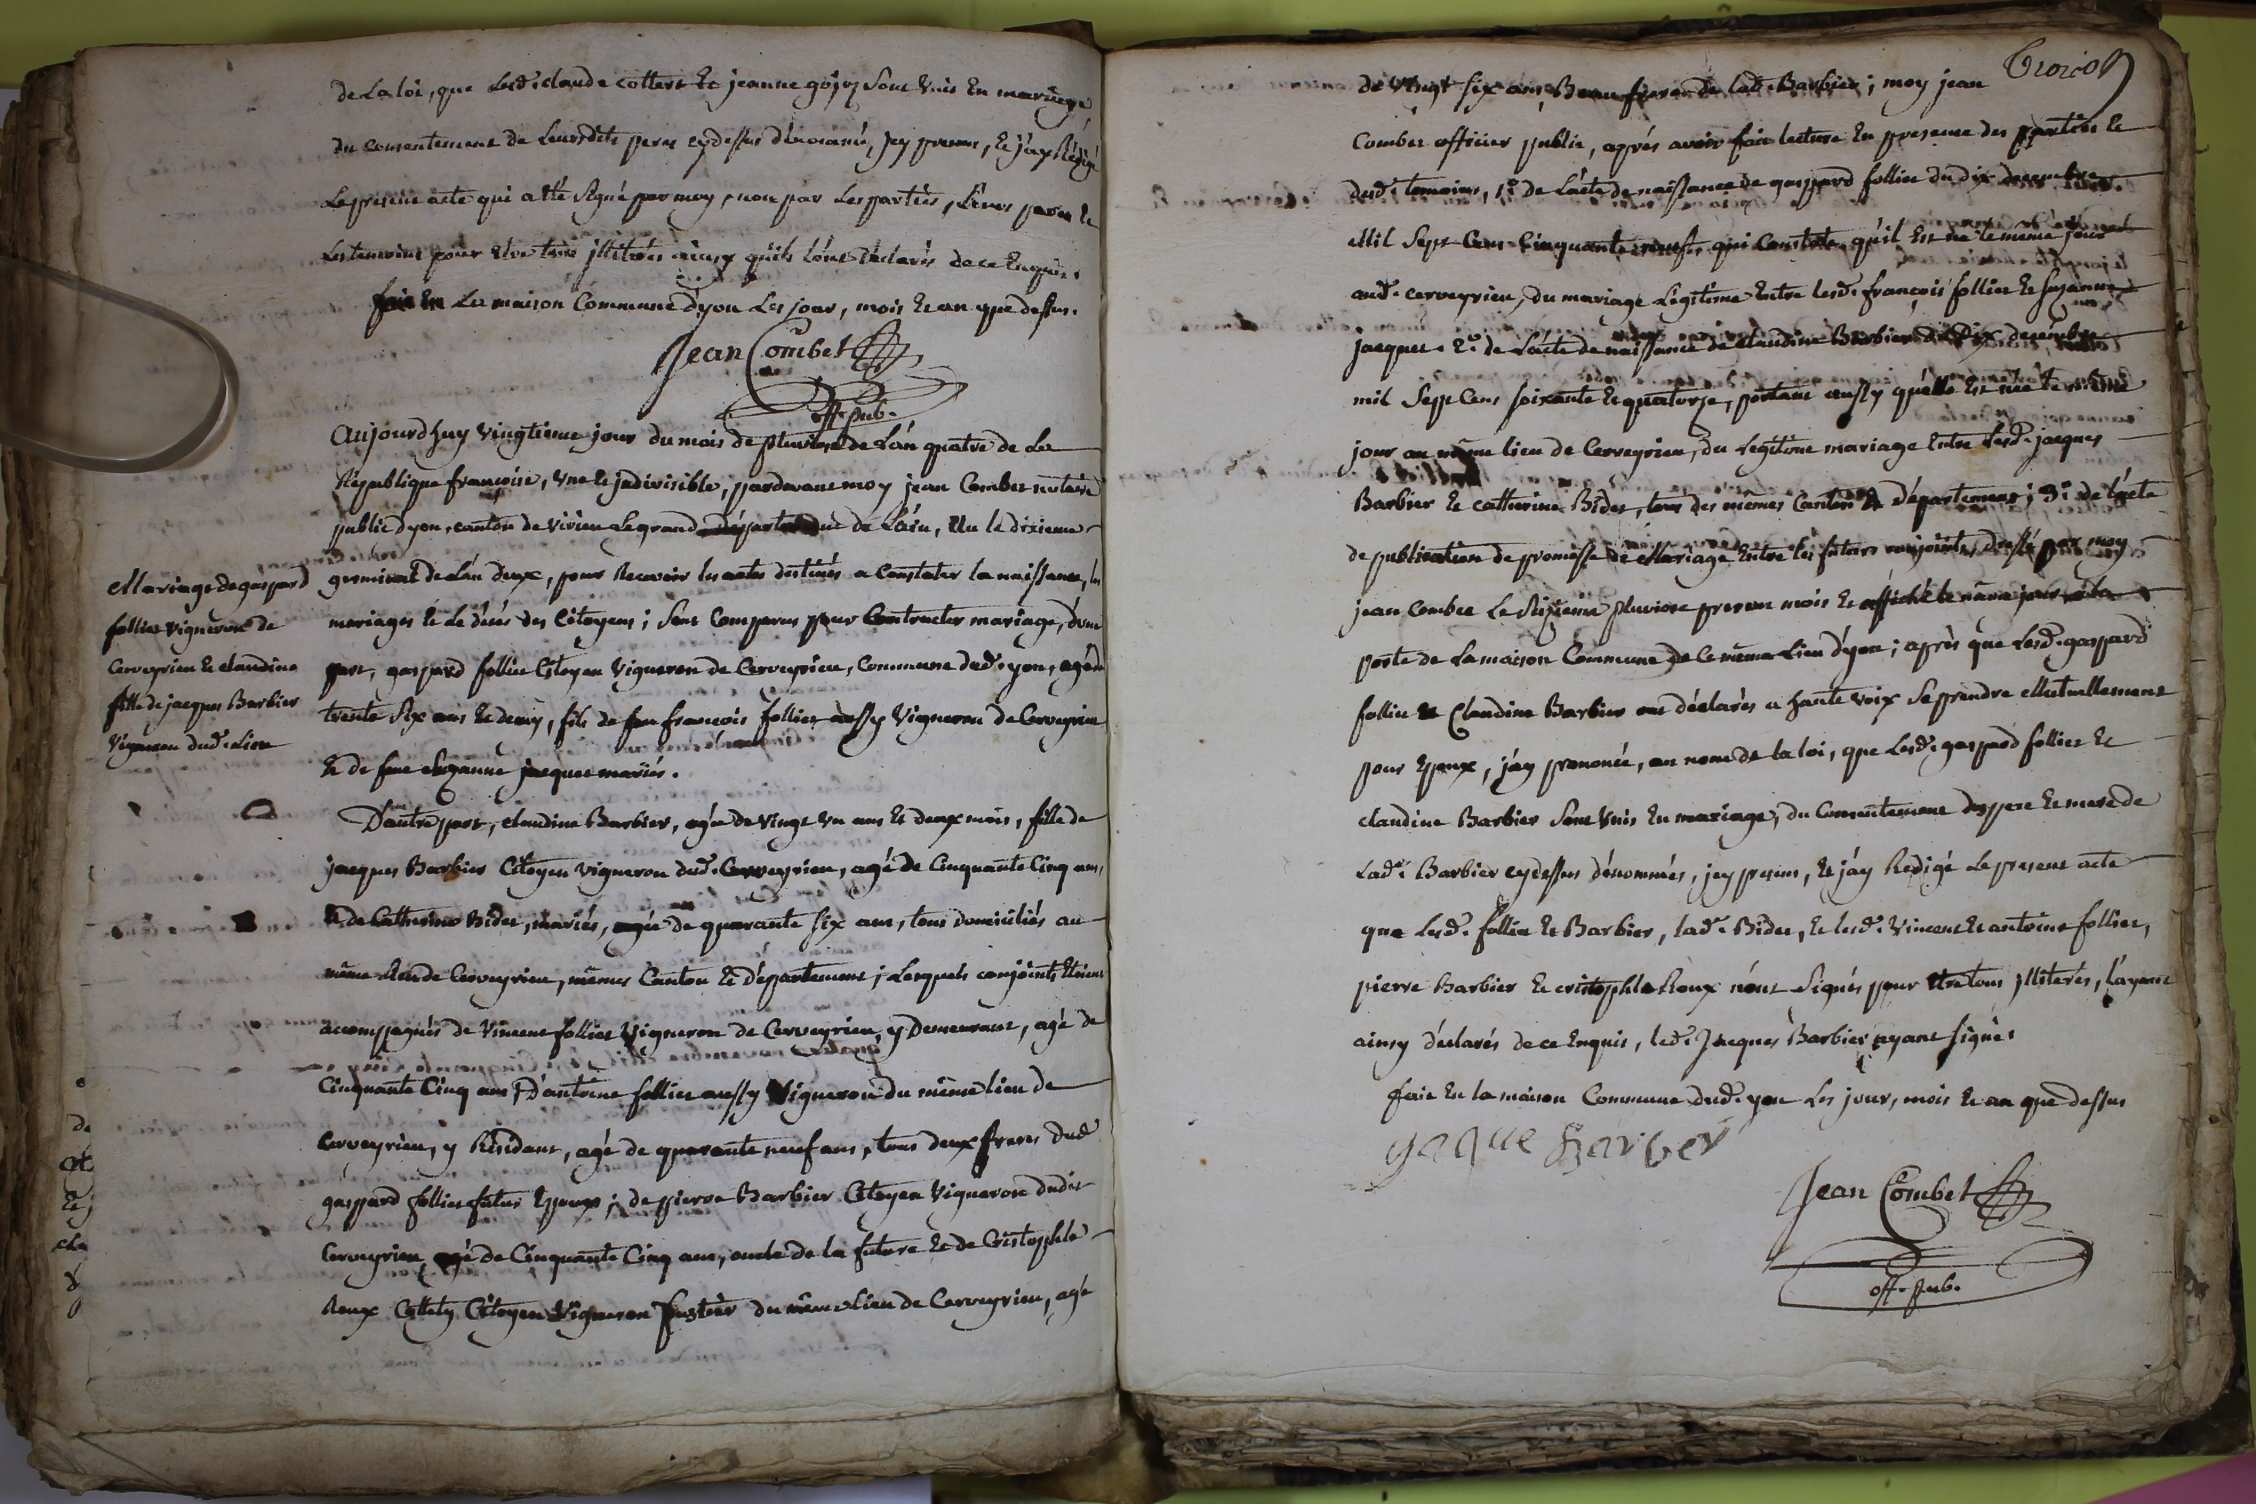 de La loi, que Lesd. claude cottert Et jeanne gojoz Sont Unis En mariage,
du consentement de Leursdits peres cydessus dénommé, jcy presens, Et j'ay Rédigé
Le present acte qui a Eté Signé par moy, non par Les parties, Leurs peres Et
Les temoins pour Etre tous jllitérés ainsy qu'ils L'ont déclarés de ce Enquis.
fait En La maison Commune d'yon Les jour, mois Et an que dessus.
Jean Combet
off. pub.
Aujourd'huy vingtieme jour du mois de pluviose de L'an quatre de La
République francoise, Une Et jndivisible, pardevant moy jean Combet notaire
public d'yon, canton de Virieu Le grand département de L'ain, Elu le dixieme
Mariage de gaspard
follier vigneron de
Cerveyrieu Et claudine
fille de jacques Barbier
Vigneron dud. Lieu
germinal de L'an deux, pour Recevoir les actes destinés a Constater la naissance, les
mariages Et Le décés des Citoyens; Sont Comparus pour Contracter mariage, d'une
part, gaspard follier Citoyen Vigneron de Cerveyrieu, Commune dud. yon, agé de
trente Six ans Et demy, fils de feu francois follier aussy Vigneron de Cerveyrieu
Et de feue Suzanne jacquet mariés.
D'autre part, claudine Barbier, agée de vingt un ans Et deux mois, fille de
jacques Barbier Citoyen vigneron dud. Cerveyrieu, agé de Cinquante Cinq ans,
Et de Catherine Bidet, mariés, agée de quarante six ans, tous domiciliés au
même Lieu de Cerveyrieu, mêmes Canton Et département; Lesquels conjoints Etoient
accompagnés de Vincent follier Vigneron de Cerveyrieu, y Demeurant, agé de
Cinquante Cinq ans D'antoine follier aussy Vigneron du même lieu de
Cerveyrieu, y Résidant, agé de quarante neuf ans, tous deux freres dud.
gaspard follier futur Epoux; de pierre Barbier Citoyen Vigneron dudit
Cerveyrieu, agé de Cinquante Cinq ans, oncle de la future Et de Cristophle
Roux Citoyen Vigneron du même Lieu de Cerveyrieu, agé
Troizon
de Vingt six ans Beau frere de lad. Barbier; moy jean
Combet officier public, aprés avoir fait lecture En presence des parties Et
desd. temoins, 1.° de L'acte de naissance de gaspard follier du dix decembre
Mil Sept Cent Cinquante neuf, qui Constate qu'il Est né le même jour
aud. cerveyrieu, du mariage Legitime Entre Lesd. françois follier Et Suzanne
jacquet. 2.° de L'acte de naissance de Claudine Barbier du Dix decembre
mil Sept Cent soixante Et quatorze, portant aussy quelle Est née le même
jour au même lieu de Cerveyrieu, du Legitime mariage Entre Lesd. jacques
Barbier Et catherine Bidet, tous des mêmes Canton Et Département; 3.° de l'acte
de publication de promesse de Mariage Entre les futurs conjoints, dressé par moy
jean Combet Le Sixieme pluviose present mois Et affiché le même jour a la
porte de La maison Commune de Ce même Lieu d'yon; aprés que Lesd. gaspard
follier Et Claudine Barbier ont déclarés a haute voix Se prendre Mutuellement
pour Epoux, j'ay prononcé, au nom de la loi, que Lesd. gaspard follier Et
claudine Barbier Sont Unis En mariage, du Consentement des pere Et mere de
Lad. Barbier cydessus dénommés, jcy presens, Et j'ay Redigé Le present acte
que Lesd. follier Et Barbier, lad. Bidet, Et lesd. Vincent Et antoine follier,
pierre Barbier Et cristophle Roux n'ont Signés pour Etre tous jlliterés, L'ayant
ainsy déclarés de ce Enquis, led. Jacques Barbier ayant signé.
fait En la maison Commune dud. yon Les jour, mois Et an que dessus
yaque Barber
Jean Combet
off. pub.